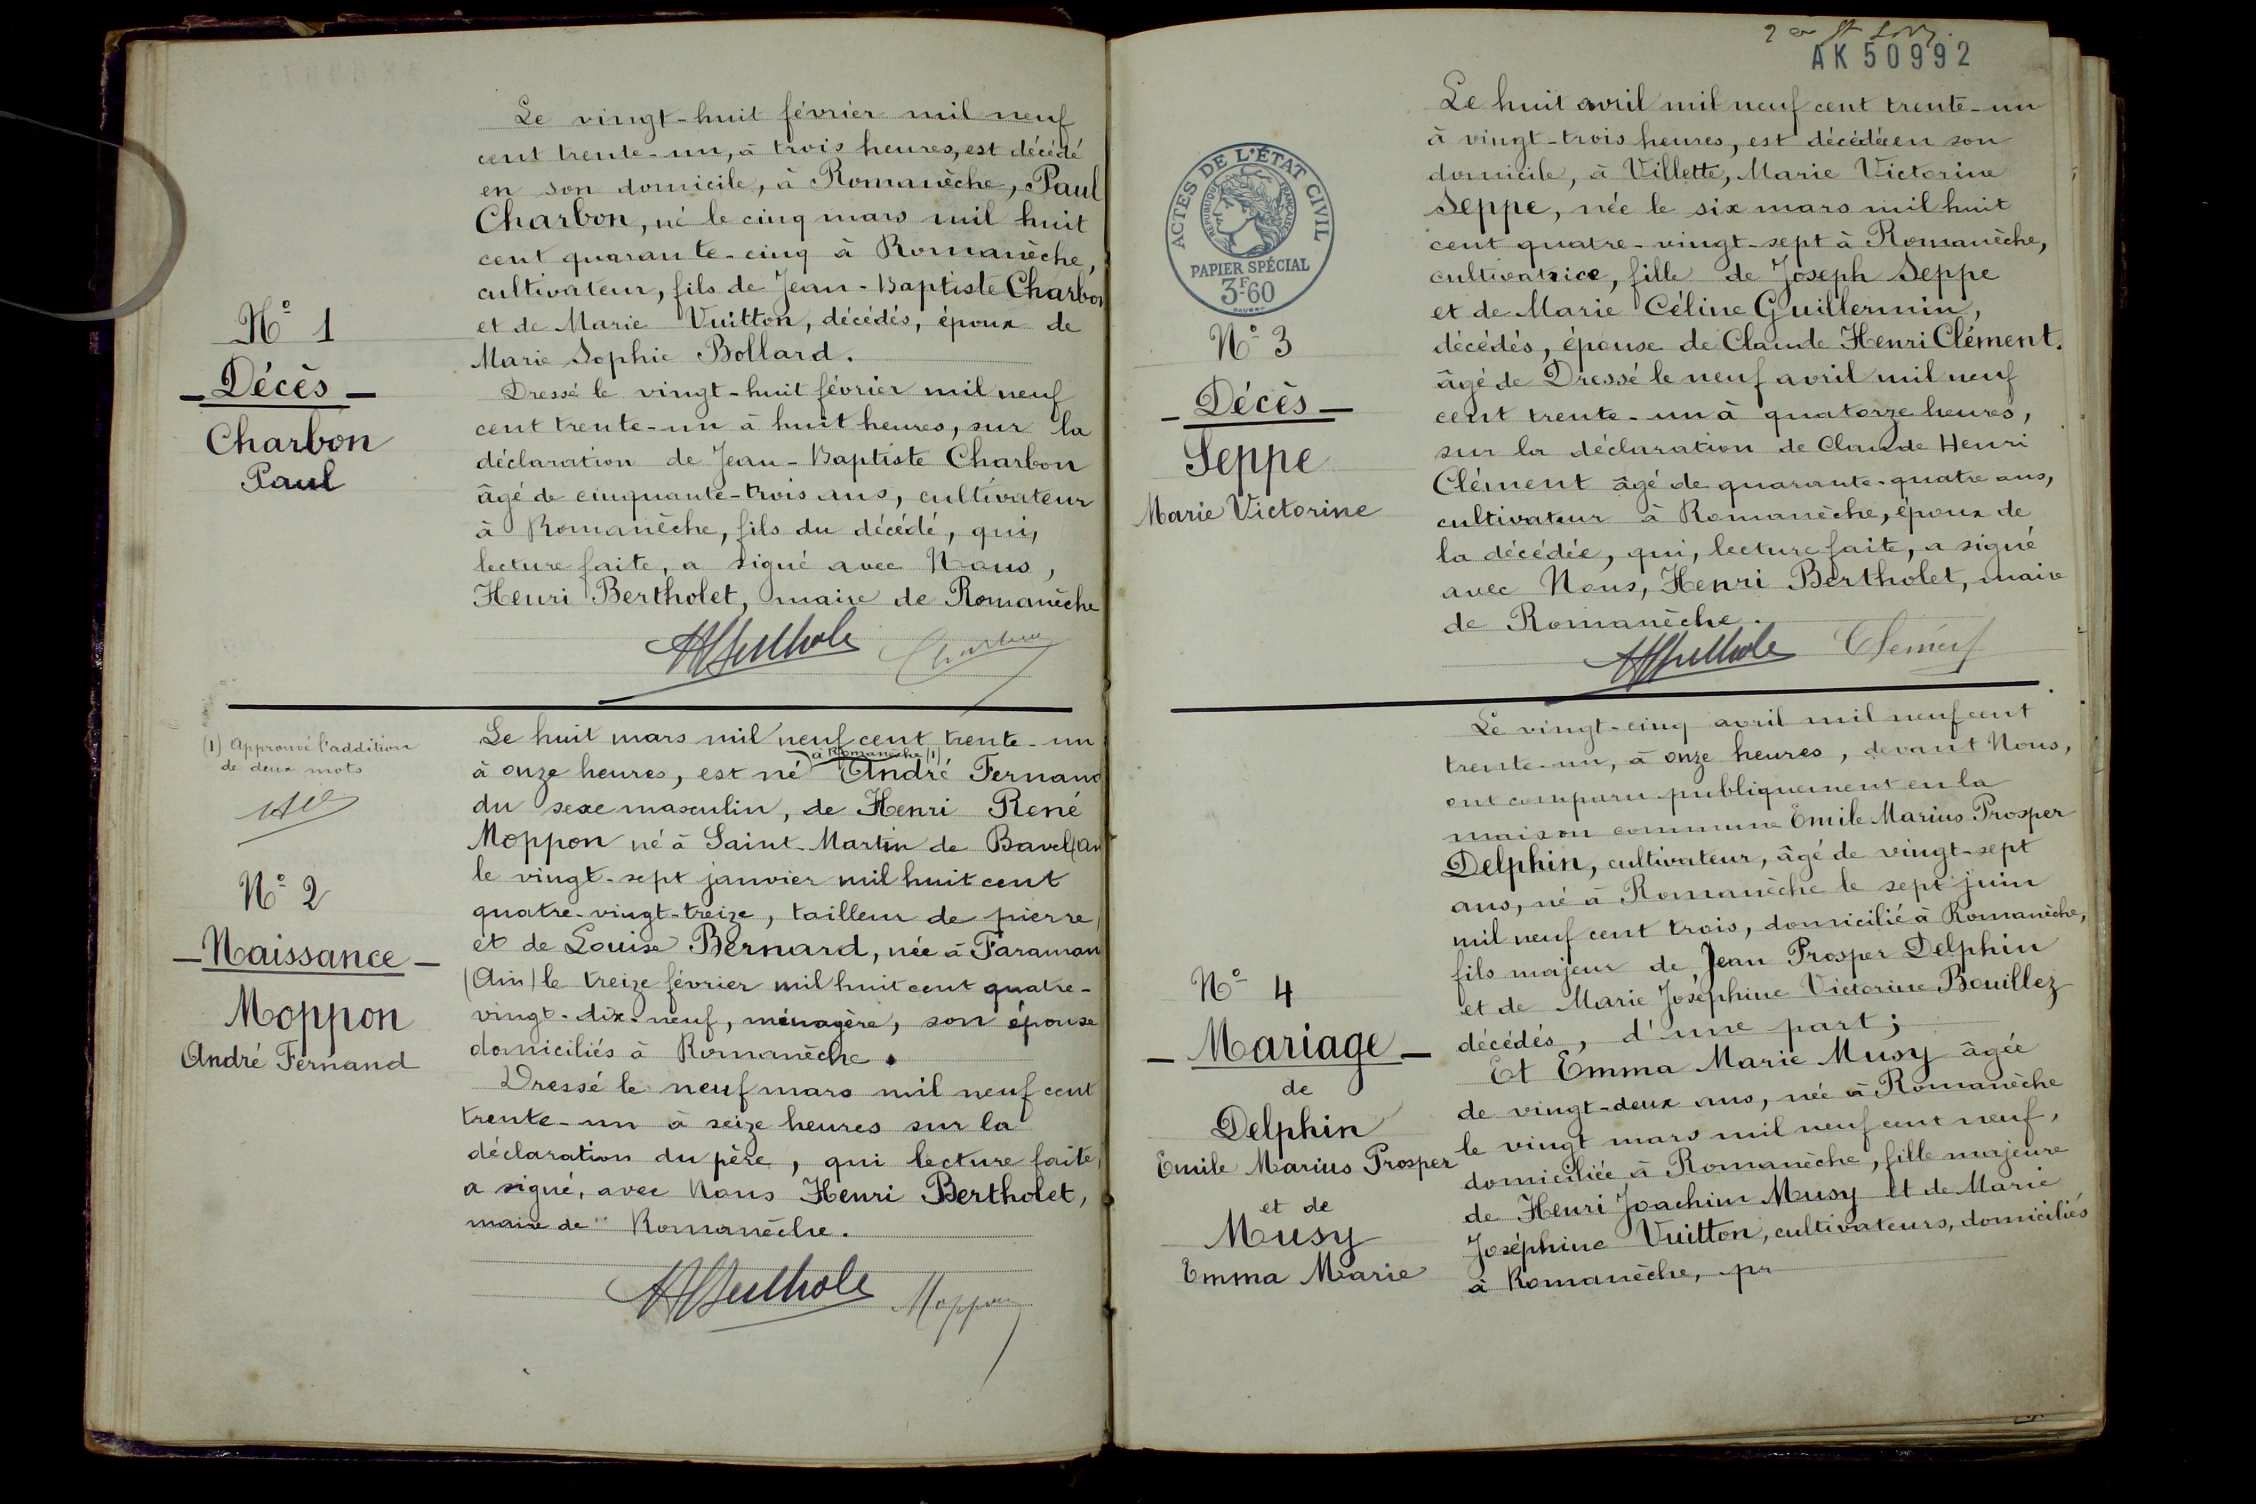 N° 1
Décès
Charbon
Paul
Le vingt-huit février mil neuf
cent trente-un, à trois heures, est décédé
en son domicile, à Romanèche, Paul
Charbon, né le cinq mars mil huit
cent quarante-cinq à Romanèche,
cultivateur, fils de Jean-Baptiste Charbon
et de Marie Vuitton, décédés, époux de
Marie Sophie Bollard.
Dressé le vingt-huit février mil neuf
cent trente-un à huit heures, sur la
déclaration de Jean-Baptiste Charbon
âgé de cinquante-trois ans, cultivateur
à Romanèche, fils du décédé, qui,
lecture faite, a signé avec Nous,
Henri Bertholet, maire de Romanèche
HBerthole Charbon
(1) Approuvé l'addition
de deux mots
N° 2
Naissance
Moppon
André Fernand
Le huit mars mil neuf cent trente-un
à Romanèche (1)
à onze heures, est né André Fernand
du sexe masculin, de Henri René
Moppon né à Saint-Martin de Bavel (Ain
le vingt-sept janvier mil huit cent
quatre-vingt-treize, tailleur de pierre,
et de Louise Bernard, née à Faraman
(Ain) le treize février mil huit cent quatre-
vingt-dix-neuf, ménagère, son épouse
domiciliés à Romanèche.
Dressé le neuf mars mil neuf cent
trente-un à seize heures sur la
déclaration du père, qui lecture faite,
a signé, avec Nous Henri Bertholet,
maire de Romanèche.
HBerthole Moppon
AK 50992
ACTES DE L'ÉTAT CIVIL
RÉPUBLIQUE FRANÇAISE
PAPIER SPÉCIAL
3F60
N° 3
Décès
Seppe
Marie Victorine
Le huit avril mil neuf cent trente-un
à vingt-trois heures, est décédée en son
domicile, à Villette, Marie Victorine
Seppe, née le six mars mil huit
cent quatre-vingt-sept à Romanèche,
cultivatrice, fille de Joseph Seppe
et de Marie Céline Guillermin,
décédés, épouse de Claude Henri Clément.
âgé de Dressé le neuf avril mil neuf
cent trente-un à quatorze heures,
sur la déclaration de Claude Henri
Clément âgé de quarante-quatre ans,
cultivateur à Romanèche, époux de
la décédée, qui, lecture faite, a signé
avec Nous, Henri Bertholet, maire
de Romanèche.
HBerthole Clément
N° 4
Mariage
de
Delphin
Emile Marius Prosper
et de
Musy
Emma Marie
Le vingt-cinq avril mil neuf cent
trente-un, à onze heures, devant Nous,
ont comparu publiquement en la
maison commune Emile Marius Prosper
Delphin, cultivateur, âgé de vingt-sept
ans, né à Romanèche le sept juin
mil neuf cent trois, domicilié à Romanèche,
fils majeur de Jean Prosper Delphin
et de Marie Joséphine Victorine Bouillez
décédés, d'une part;
Et Emma Marie Musy âgée
de vingt-deux ans, née à Romanèche
le vingt mars mil neuf cent neuf,
domiciliée à Romanèche, fille majeure
de Henri Joachim Musy et de Marie
Joséphine Vuitton, cultivateurs, domiciliés
à Romanèche, pr